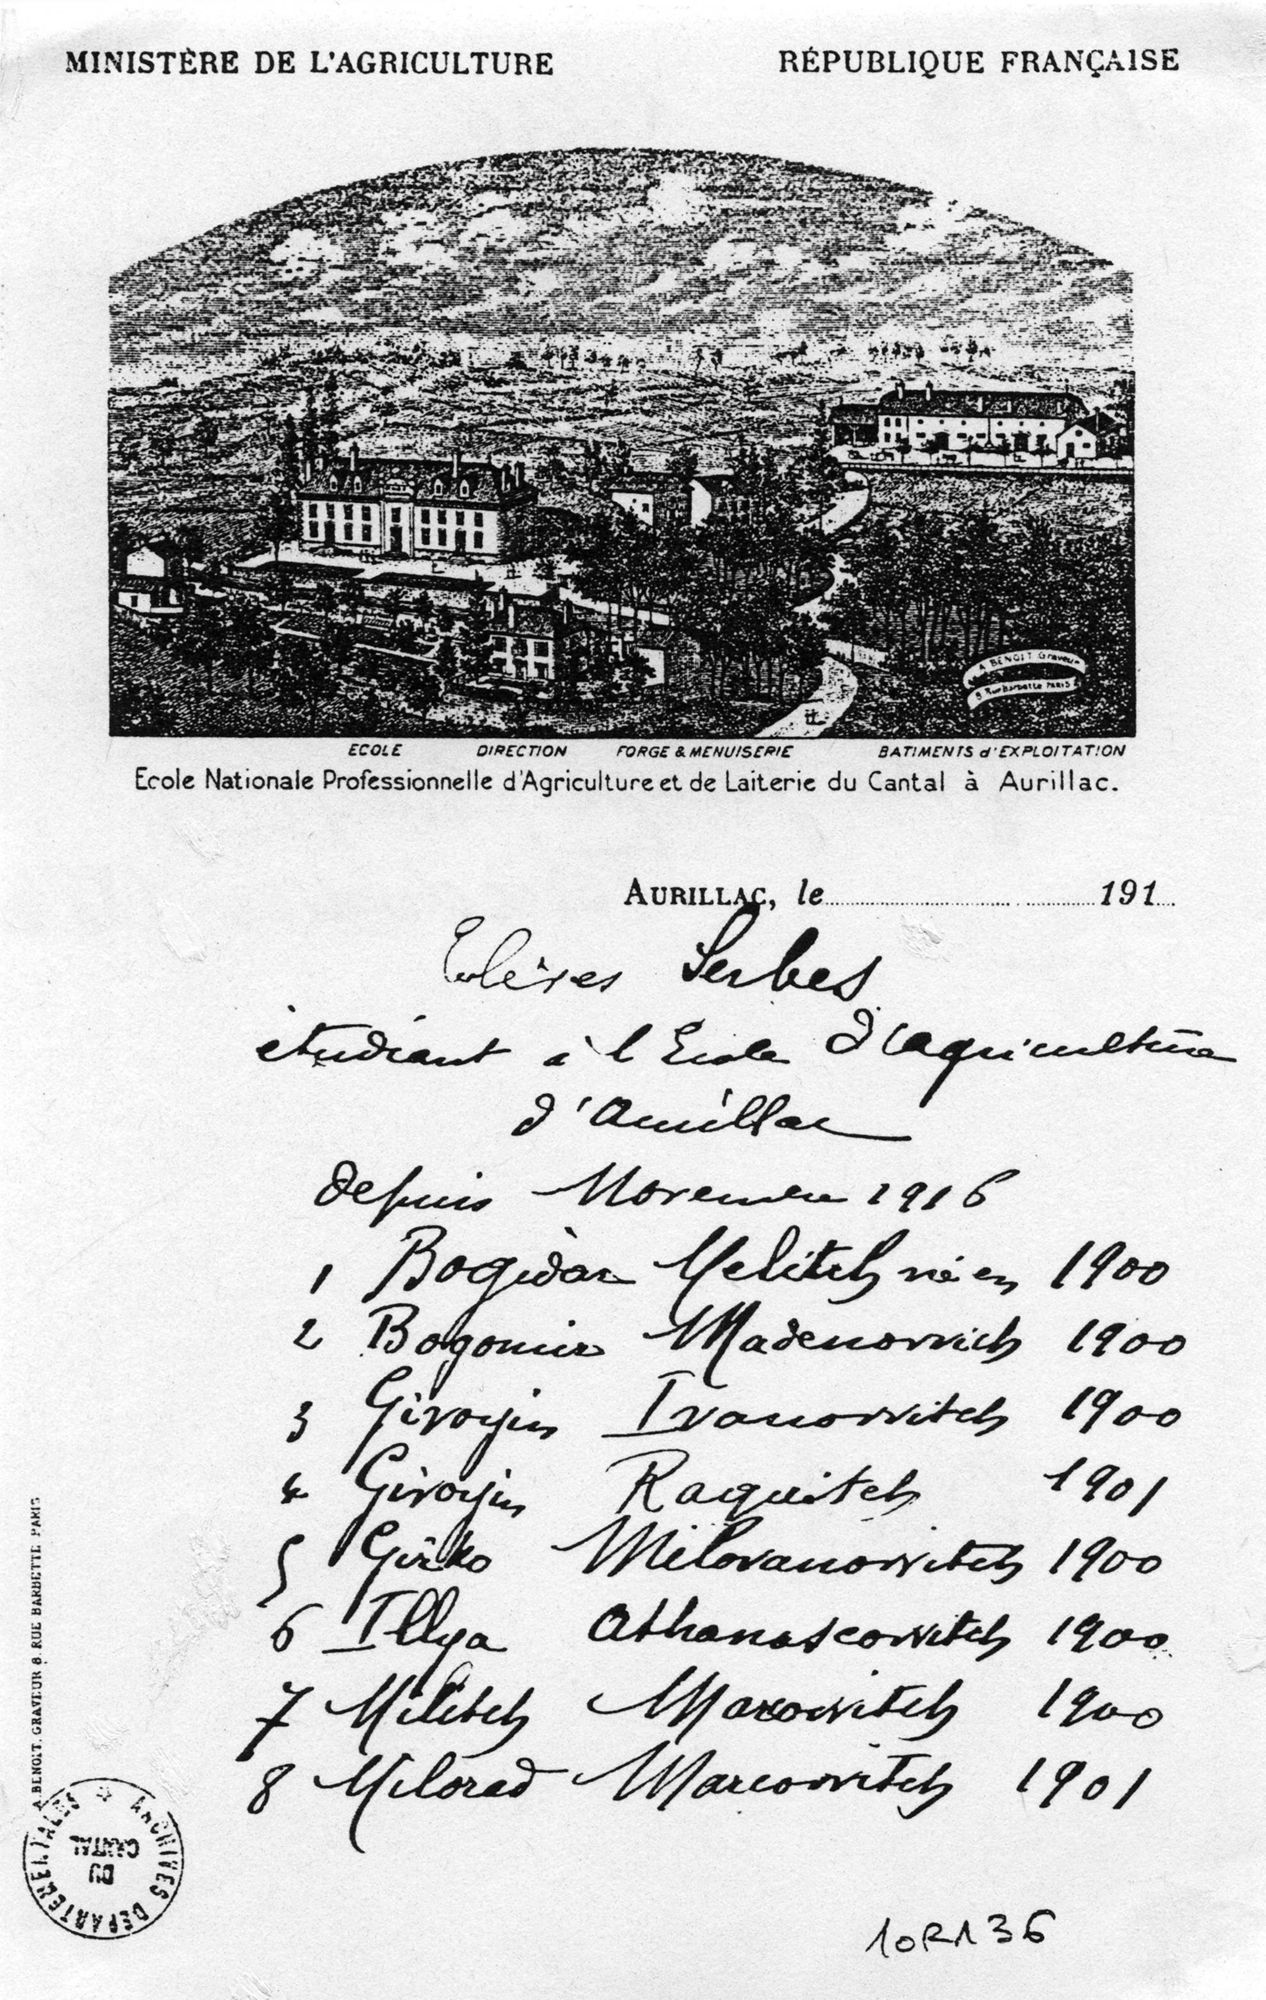 MINISTÈRE DE L'AGRICULTURE RÉPUBLIQUE FRANÇAISE
A BENOIT Graveur
8 Rue Barbette PARIS
ECOLE DIRECTION FORGE & MENUISERIE BATIMENTS d'EXPLOITATION
Ecole Nationale Professionnelle d'Agriculture et de Laiterie du Cantal à Aurillac.
AURILLAC, le 191
Elèves Serbes
étudiant à l'Ecole d'agriculture
d'Aurillac
depuis Novembre 1916
1 Bogidar Melitch né en 1900
2 Bogomir Madenovitch 1900
3 Givoyin Ivanowitch 1900
4 Givoyin Raquitch 1901
5 Girko Milovanowitch 1900
6 Illya Athanascowitch 1900
7 Militch Marcowitch 1900
8 Milorad Marcowitch 1901
A. BENOIT. GRAVEUR 8. RUE BARBETTE PARIS
ARCHIVES DEPARTEMENTALES
DU
CANTAL
10R136